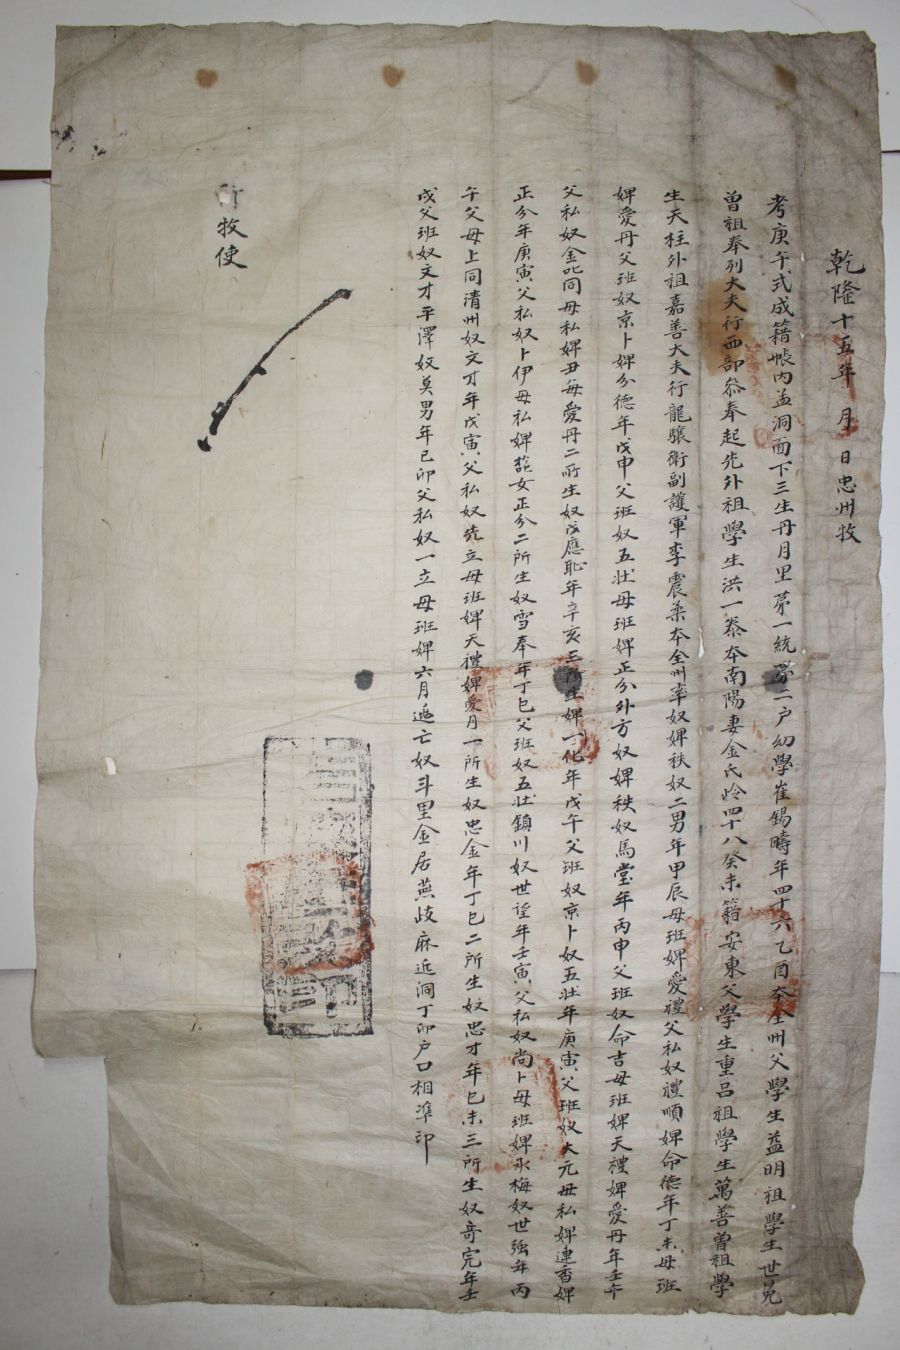 乾隆十五年 月 日忠州牧
考庚午式成籍帳内孟洞面下三生丹月里第一統第二户幼學崔錫疇年四十六乙酉本全州父學生益明祖學生世冕
曾祖奉列大夫行西部叅奉起先外祖學生洪一泰本南陽妻金氏齡四十八癸未籍安東父學生重呂祖學生萬善曾祖學
生天柱外祖嘉善大夫行龍驤衛副護軍李震桒本全州率奴婢秩奴二男年甲辰母班婢愛禮父私奴禮順婢命德年丁未母班
婢愛丹父班奴京卜婢分德年戊申父班奴五壯母班婢正分外方奴婢秩奴馬堂年丙申父班奴命吉母班婢天禮婢愛丹年壬午
父私奴金叱同母私婢丑每愛丹二所生奴戊應恥年辛亥三所生婢一化年戊午父班奴京卜奴五壯年庚寅父班奴大元母私婢連香婢
正分年庚寅父私奴卜伊母私婢 女正分二所生奴雪奉年丁巳父班奴五壯鎮川奴世望年壬寅父私奴尚卜母班婢承梅奴世強年丙
午父母上同清州奴文才年戊寅父私奴先立母班婢天禮婢愛月一所生奴忠金年丁巳二所生奴忠才年己未三所生奴奇完年壬
戌父班奴文才平澤奴莫男年己卯父私奴一立母班婢六月逃亡奴斗里金居燕歧麻近洞丁卯户口相凖印
行牧使